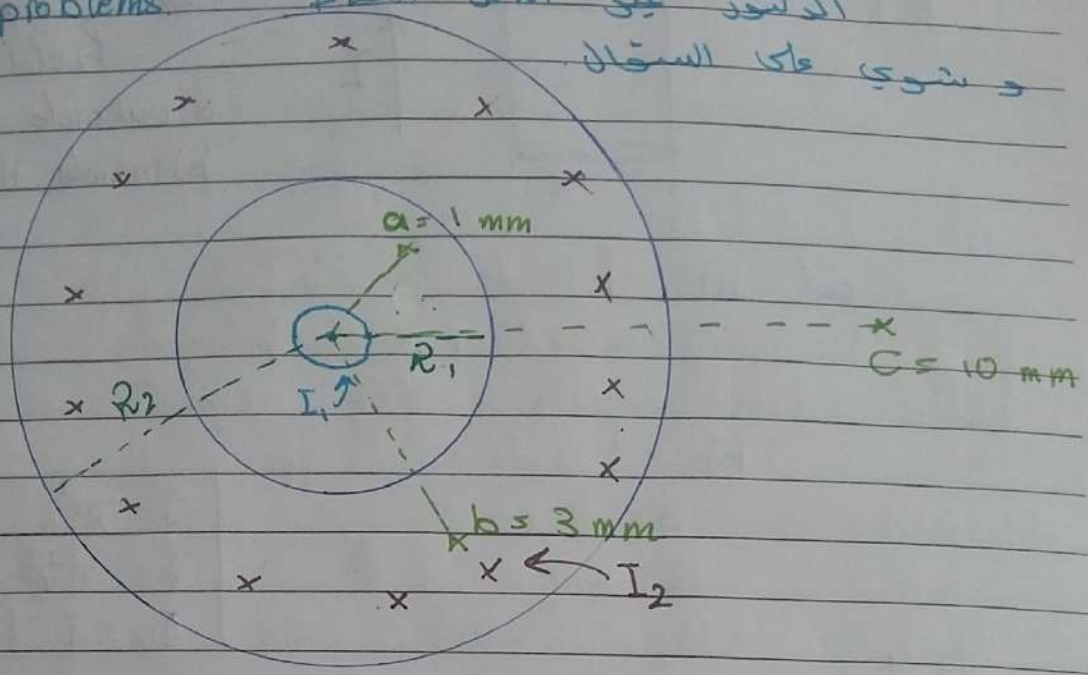 problems
و شوي على السؤال
a = 1 mm
R₁
C = 10 mm
R₂
I₁
b = 3 mm
I₂